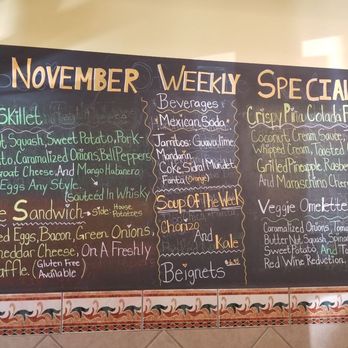 NOVEMBER WEEKLY SPECIAL
Skillet
Squash, Sweet Potato, Pork-
Caramelized Onions, Bell Peppers
Goat Cheese And Mango Habanero
Eggs Any Style.
Sautéed In Whisky
Sandwich → Side: House Potatoes
Eggs, Bacon, Green Onions,
Cheddar Cheese, On A Freshly
Waffle. (Gluten Free Available)
Beverages
Mexican Soda:
Jarritos: Guava, Lime,
Mandarin
Coke, Sidral Mundet,
Fanta (Orange)
Soup Of The Week
Chorizo
And
Kale
Beignets
Crispy Piña Colada F
Coconut Cream Sauce,
Whipped Cream, Toasted
Grilled Pineapple, Rasp
And Maraschino Cherry
Veggie Omelette
Caramelized Onions, Tom
Butter Nut Squash, Spin
Sweet Potato, And
Red Wine Reduction.